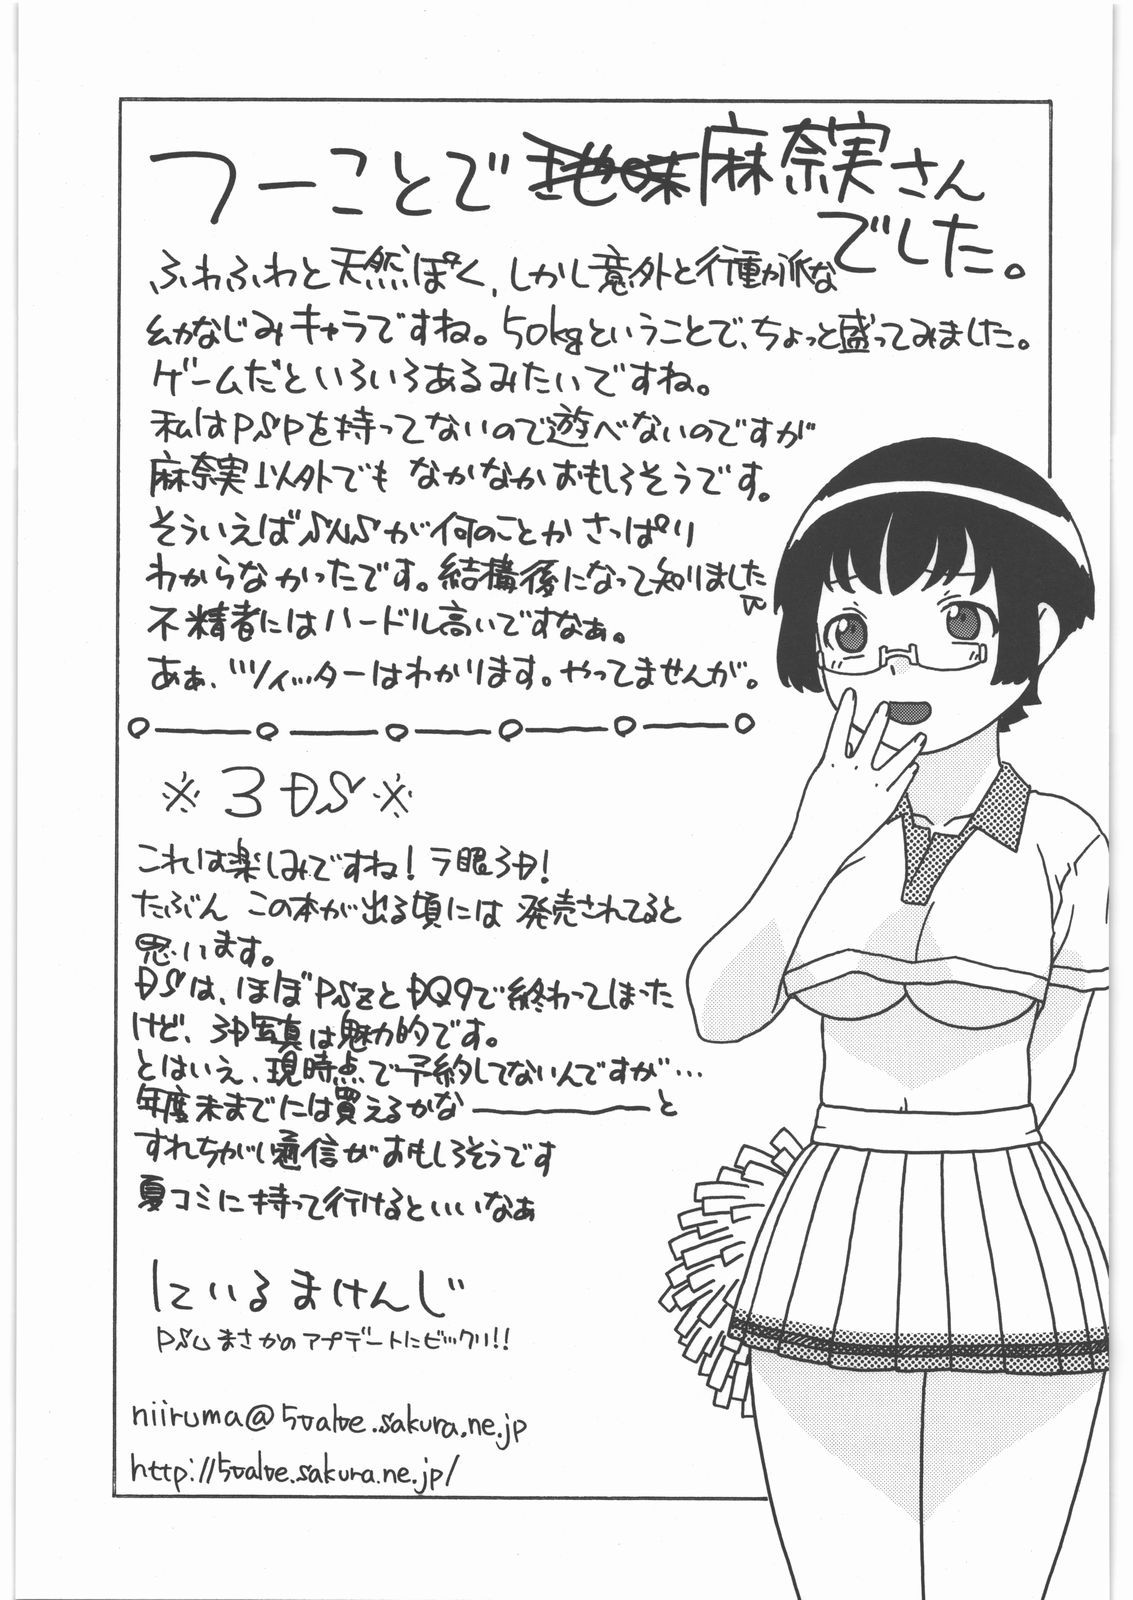 つーことで地味麻奈実さん
でした。
ふわふわと天然ぽく、しかし意外と行動派な
幼なじみキャラですね。50kgということで、ちょっと盛ってみました。
ゲームだといろいろあるみたいですね。
私はPSPを持ってないので遊べないのですが
麻奈実以外でもなかなかおもしろそうです。
そういえばSNSが何のことかさっぱり
わからなかったです。結構後になって知りました
不精者にはハードル高いですなぁ。
あぁ、ツイッターはわかります。やってませんが。
※3DS※
これは楽しみですね!ラ眼3D!
たぶんこの本が出る頃には発売されてると
思います。
DSは、ほぼPSZとDQ9で終わってしまった
けど、3D写真は魅力的です。
とはいえ、現時点で予約してないんですが…
年度末までには買えるかな――と
すれちがい通信がおもしろそうです
夏コミに持って行けるといいなぁ
にいるまけんじ
PSUまさかのアプデートにビックリ!!
niiruma@5value.sakura.ne.jp
http://5value.sakura.ne.jp/